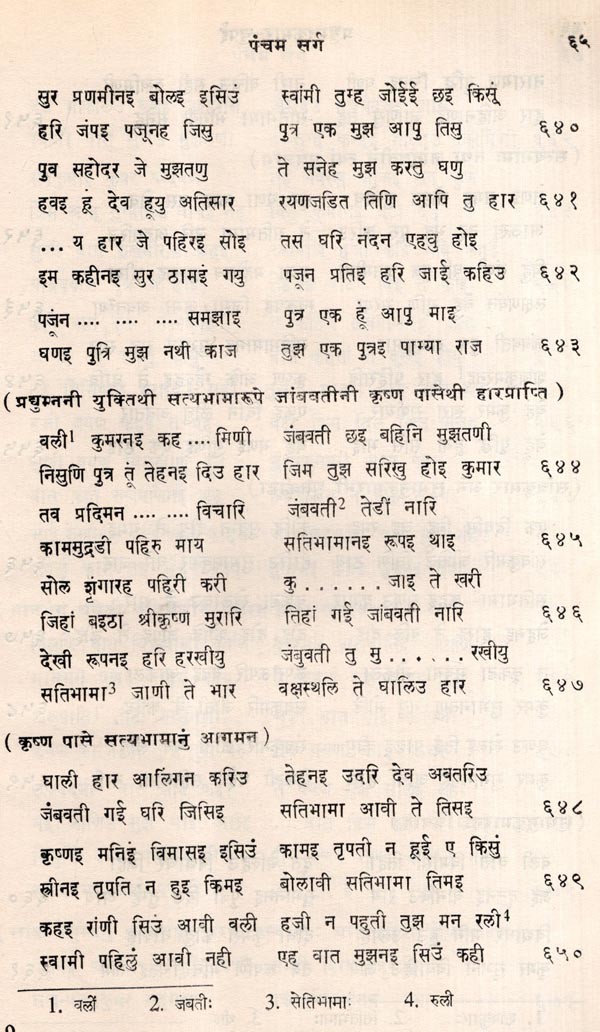 पंचम सर्ग ६५
सुर प्रणमीनइ बोलइ इसिउं स्वांमी तुम्ह जोईई छइ किसूं
हरि जंपइ पजूनह जिसु पुत्र एक मुझ आपु तिसु ६४०
पुव सहोदर जे मुझतणु ते सनेह मुझ करतु घणु
हवइ हूं देव हूयु अतिसार रयणजडित तिणि आपि तु हार ६४१
... य हार जे पहिरइ सोइ तस घरि नंदन एहवु होइ
इम कहीनइ सुर ठामइं गयु पजून प्रतिइ हरि जाई कहिउ ६४२
पजूंन .... .... .... समझाइ पुत्र एक हूं आपु माइ
घणइ पुत्रि मुझ नथी काज तुझ एक पुत्रइ पाम्या राज ६४३
( प्रद्युम्ननी युक्तिथी सत्यभामारूपे जांबवतीनी कृष्ण पासेथी हारप्राप्ति )
वली¹ कुमरनइ कह .... मिणी जंबवती छइ बहिनि मुझतणी
निसुणि पुत्र तूं तेहनइ दिउ हार जिम तुझ सरिखु होइ कुमार ६४४
तव प्रदिमन .... .... विचारि जंबवती² तेडीं नारि
काममुद्रडी पहिरु माय सतिभामानइ रूपइ थाइ ६४५
सोल शृंगारह पहिरी करी कु . . . . . . . . जाइ ते खरी
जिहां बइठा श्रीकृष्ण मुरारि तिहां गई जांबवती नारि ६४६
देखी रूपनइ हरि हरखीयु जंबुवती तु मु . . . . . . रखीयु
सतिभामा³ जाणी ते भार वक्षस्थलि ते घालिउ हार ६४७
( कृष्ण पासे सत्यभामानुं आगमन )
घाली हार आलिंगन करिउ तेहनइ उदरि देव अवतरिउ
जंबवती गई घरि जिसिइ सतिभामा आवी ते तिसइ ६४८
कृष्णइ मनिइं विमासइ इसिउं कामइ तृपती न हूई ए किसुं
स्त्रीनइ तृपति न हुइ किमइ बोलावी सतिभामा तिमइ ६४९
कहइ रांणी सिउं आवी वली हजी न पहुती तुझ मन रली⁴
स्वामी पहिलुं आवी नही एह वात मुझनइ सिउं कही ६५०
1. वलीं 2. जबतीः 3. सेतिभामाः 4. रुली